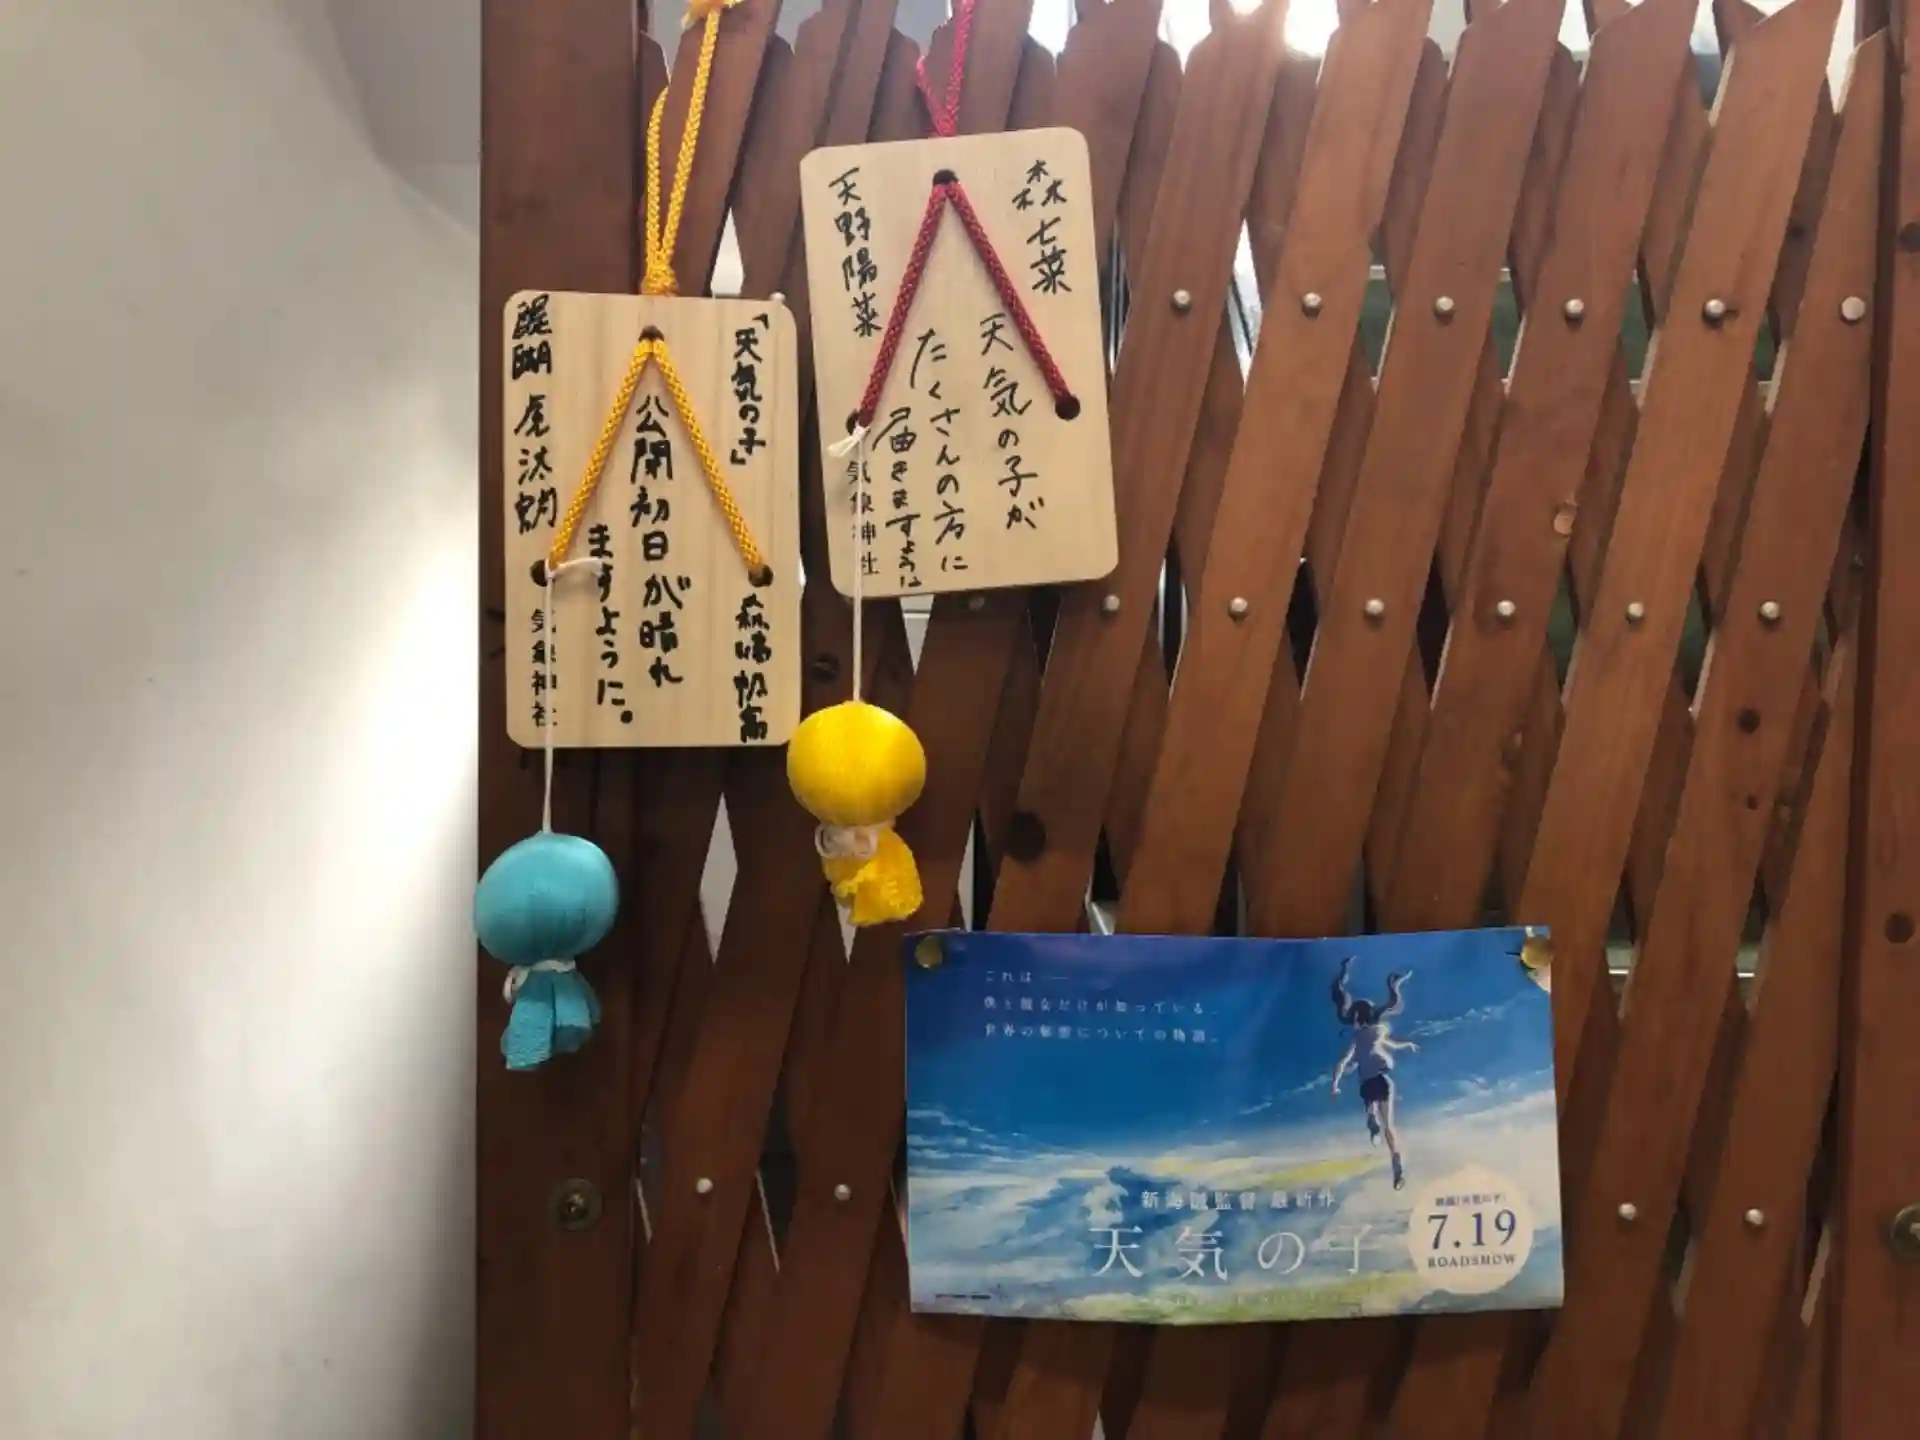 「天気の子」
公開初日が晴れ
ますように。
醍醐 虎汰朗
森嶋帆高
気象神社
森七菜
天気の子が
たくさんの方に
届きますように
天野陽菜
気象神社
これは――
僕と彼女だけが知っている、
世界の秘密についての物語。
新海誠監督 最新作
天気の子
映画『天気の子』
7.19
ROADSHOW